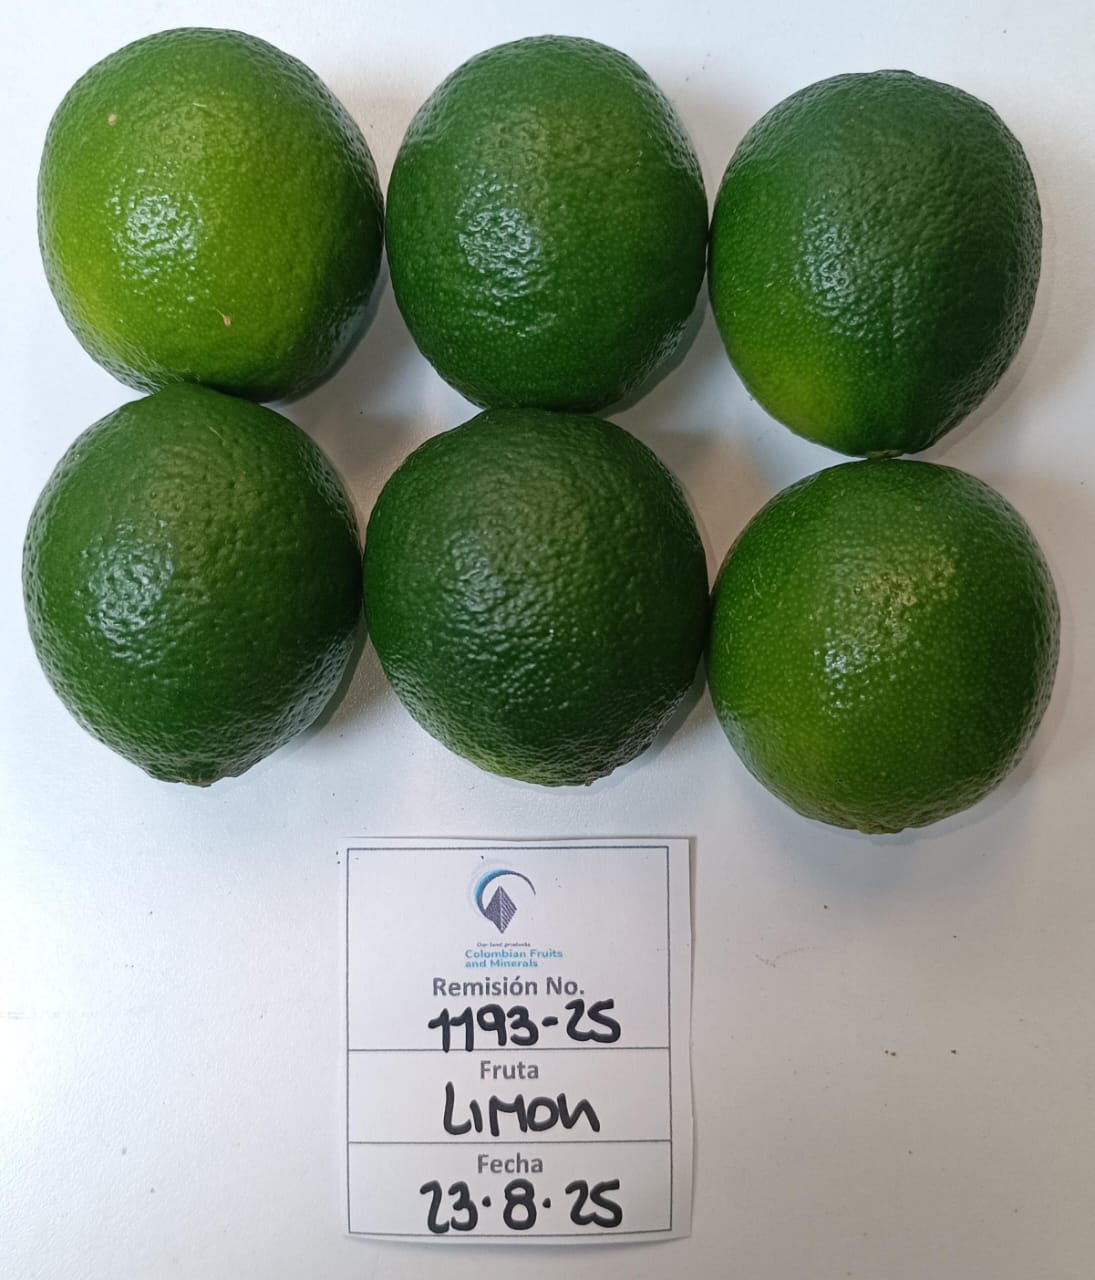 Our land products
Colombian Fruits
and Minerals
Remisión No.
1193-25
Fruta
LIMON
Fecha
23.8.25